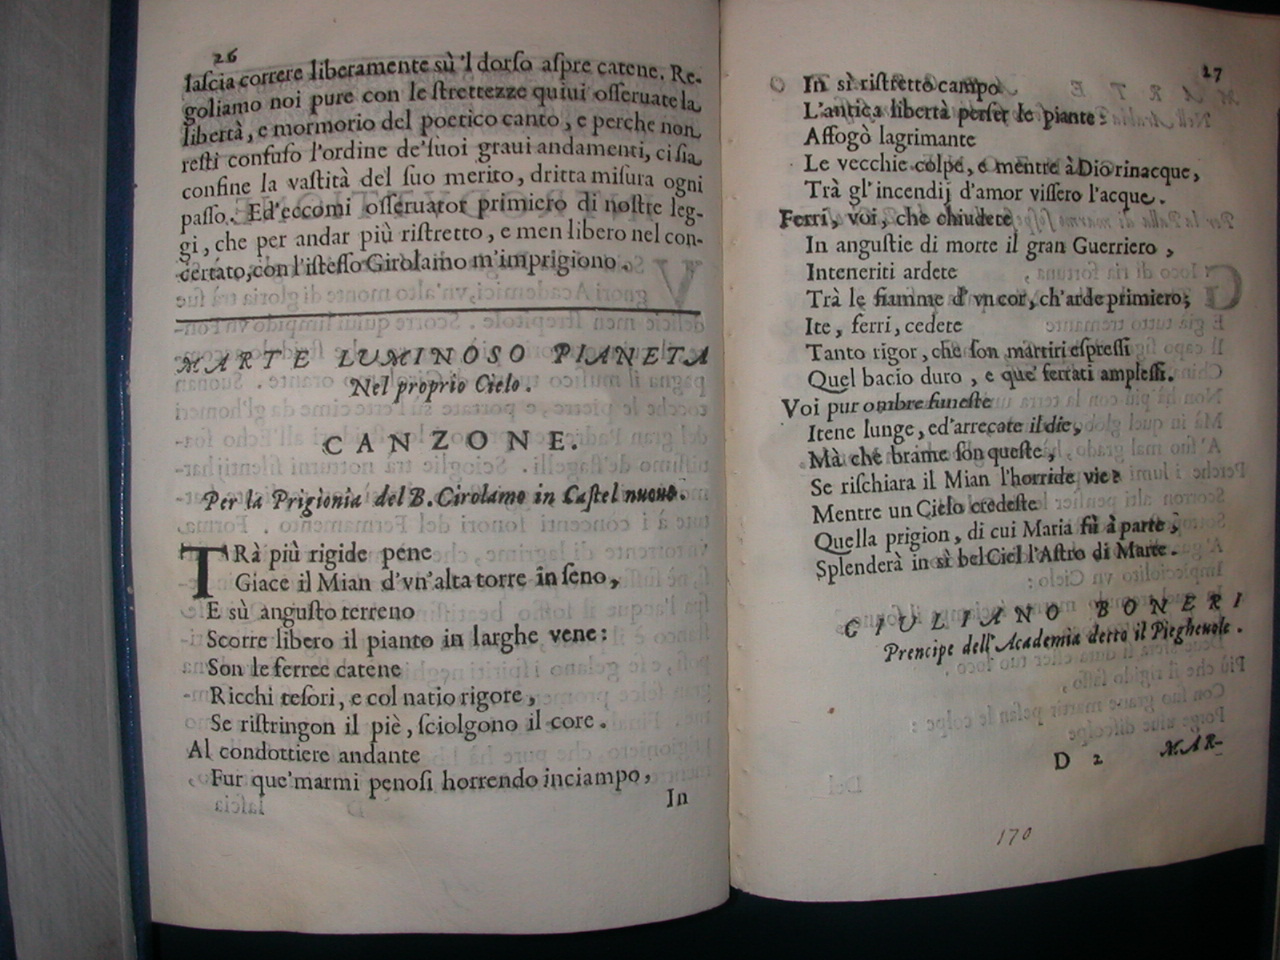 26
laſcia correre liberamente sù 'l dorſo aſpre catene. Re-
goliamo noi pure con le ſtrettezze quiui oſſeruate la
libertà, e mormorio del poetico canto, e perche non
reſti confuſo l'ordine de'ſuoi graui andamenti, ci ſia
confine la vaſtità del ſuo merito, dritta miſura ogni
paſſo. Ed'eccomi oſſeruator primiero di noſtre leg-
gi, che per andar più riſtretto, e men libero nel con-
certato, con l'iſteſſo Girolamo m'imprigiono.
MARTE LUMINOSO PIANETA
Nel proprio Cielo.
CANZONE.
Per la Prigionia del B. Girolamo in Caſtel nuouo.
TRà più rigide pene
Giace il Mian d'vn'alta torre in ſeno,
E sù anguſto terreno
Scorre libero il pianto in larghe vene:
Son le ferree catene
Ricchi teſori, e col natio rigore,
Se riſtringon il piè, ſciolgono il core.
Al condottiere andante
Fur que'marmi penoſi horrendo inciampo,
In
27
In sì riſtretto campo
L'antica libertà perſer le piante:
Affogò lagrimante
Le vecchie colpe, e mentre à Dio rinacque,
Trà gl'incendij d'amor viſſero l'acque.
Ferri, voi, che chiudete
In anguſtie di morte il gran Guerriero,
Inteneriti ardete
Trà le fiamme d'vn cor, ch'arde primiero;
Ite, ferri, cedete
Tanto rigor, che ſon martiri eſpreſſi
Quel bacio duro, e que' ferrati ampleſſi.
Voi pur ombre funeſte
Itene lunge, ed'arrecate il die,
Mà che brame ſon queſte,
Se riſchiara il Mian l'horride vie?
Mentre un Cielo credeſte
Quella prigion, di cui Maria fù à parte,
Splenderà in sì bel Ciel l'Aſtro di Marte.
GIULIANO BONERI
Prencipe dell'Academia detto il Pieghevole.
D 2
MAR-
170